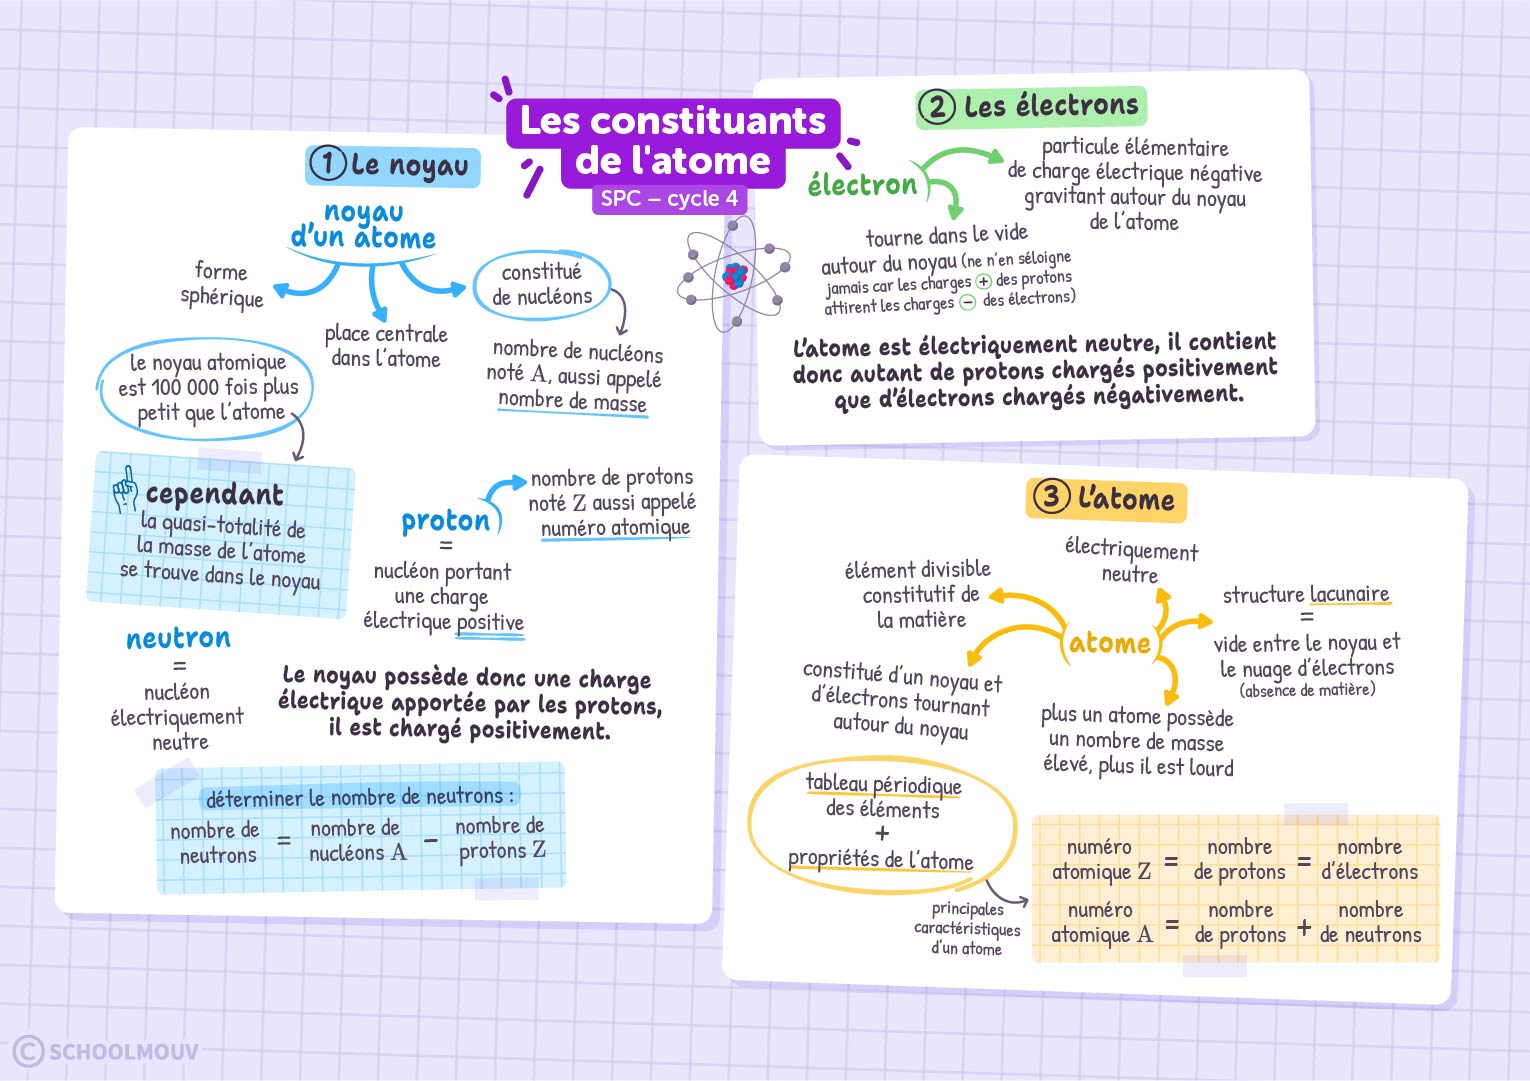 Les constituants
de l'atome
SPC – cycle 4
1 Le noyau
noyau
d'un atome
forme
sphérique
place centrale
dans l'atome
constitué
de nucléons
nombre de nucléons
noté A, aussi appelé
nombre de masse
le noyau atomique
est 100 000 fois plus
petit que l'atome
cependant
la quasi-totalité de
la masse de l'atome
se trouve dans le noyau
proton
=
nucléon portant
une charge
électrique positive
nombre de protons
noté Z aussi appelé
numéro atomique
neutron
=
nucléon
électriquement
neutre
Le noyau possède donc une charge
électrique apportée par les protons,
il est chargé positivement.
déterminer le nombre de neutrons :
nombre de neutrons = nombre de nucléons A – nombre de protons Z
2 Les électrons
électron
particule élémentaire
de charge électrique négative
gravitant autour du noyau
de l'atome
tourne dans le vide
autour du noyau (ne n'en séloigne
jamais car les charges + des protons
attirent les charges – des électrons)
L'atome est électriquement neutre, il contient
donc autant de protons chargés positivement
que d'électrons chargés négativement.
3 L'atome
atome
élément divisible
constitutif de
la matière
électriquement
neutre
structure lacunaire
=
vide entre le noyau et
le nuage d'électrons
(absence de matière)
constitué d'un noyau et
d'électrons tournant
autour du noyau
plus un atome possède
un nombre de masse
élevé, plus il est lourd
tableau périodique
des éléments
+
propriétés de l'atome
principales
caractéristiques
d'un atome
numéro atomique Z = nombre de protons = nombre d'électrons
numéro atomique A = nombre de protons + nombre de neutrons
© SCHOOLMOUV